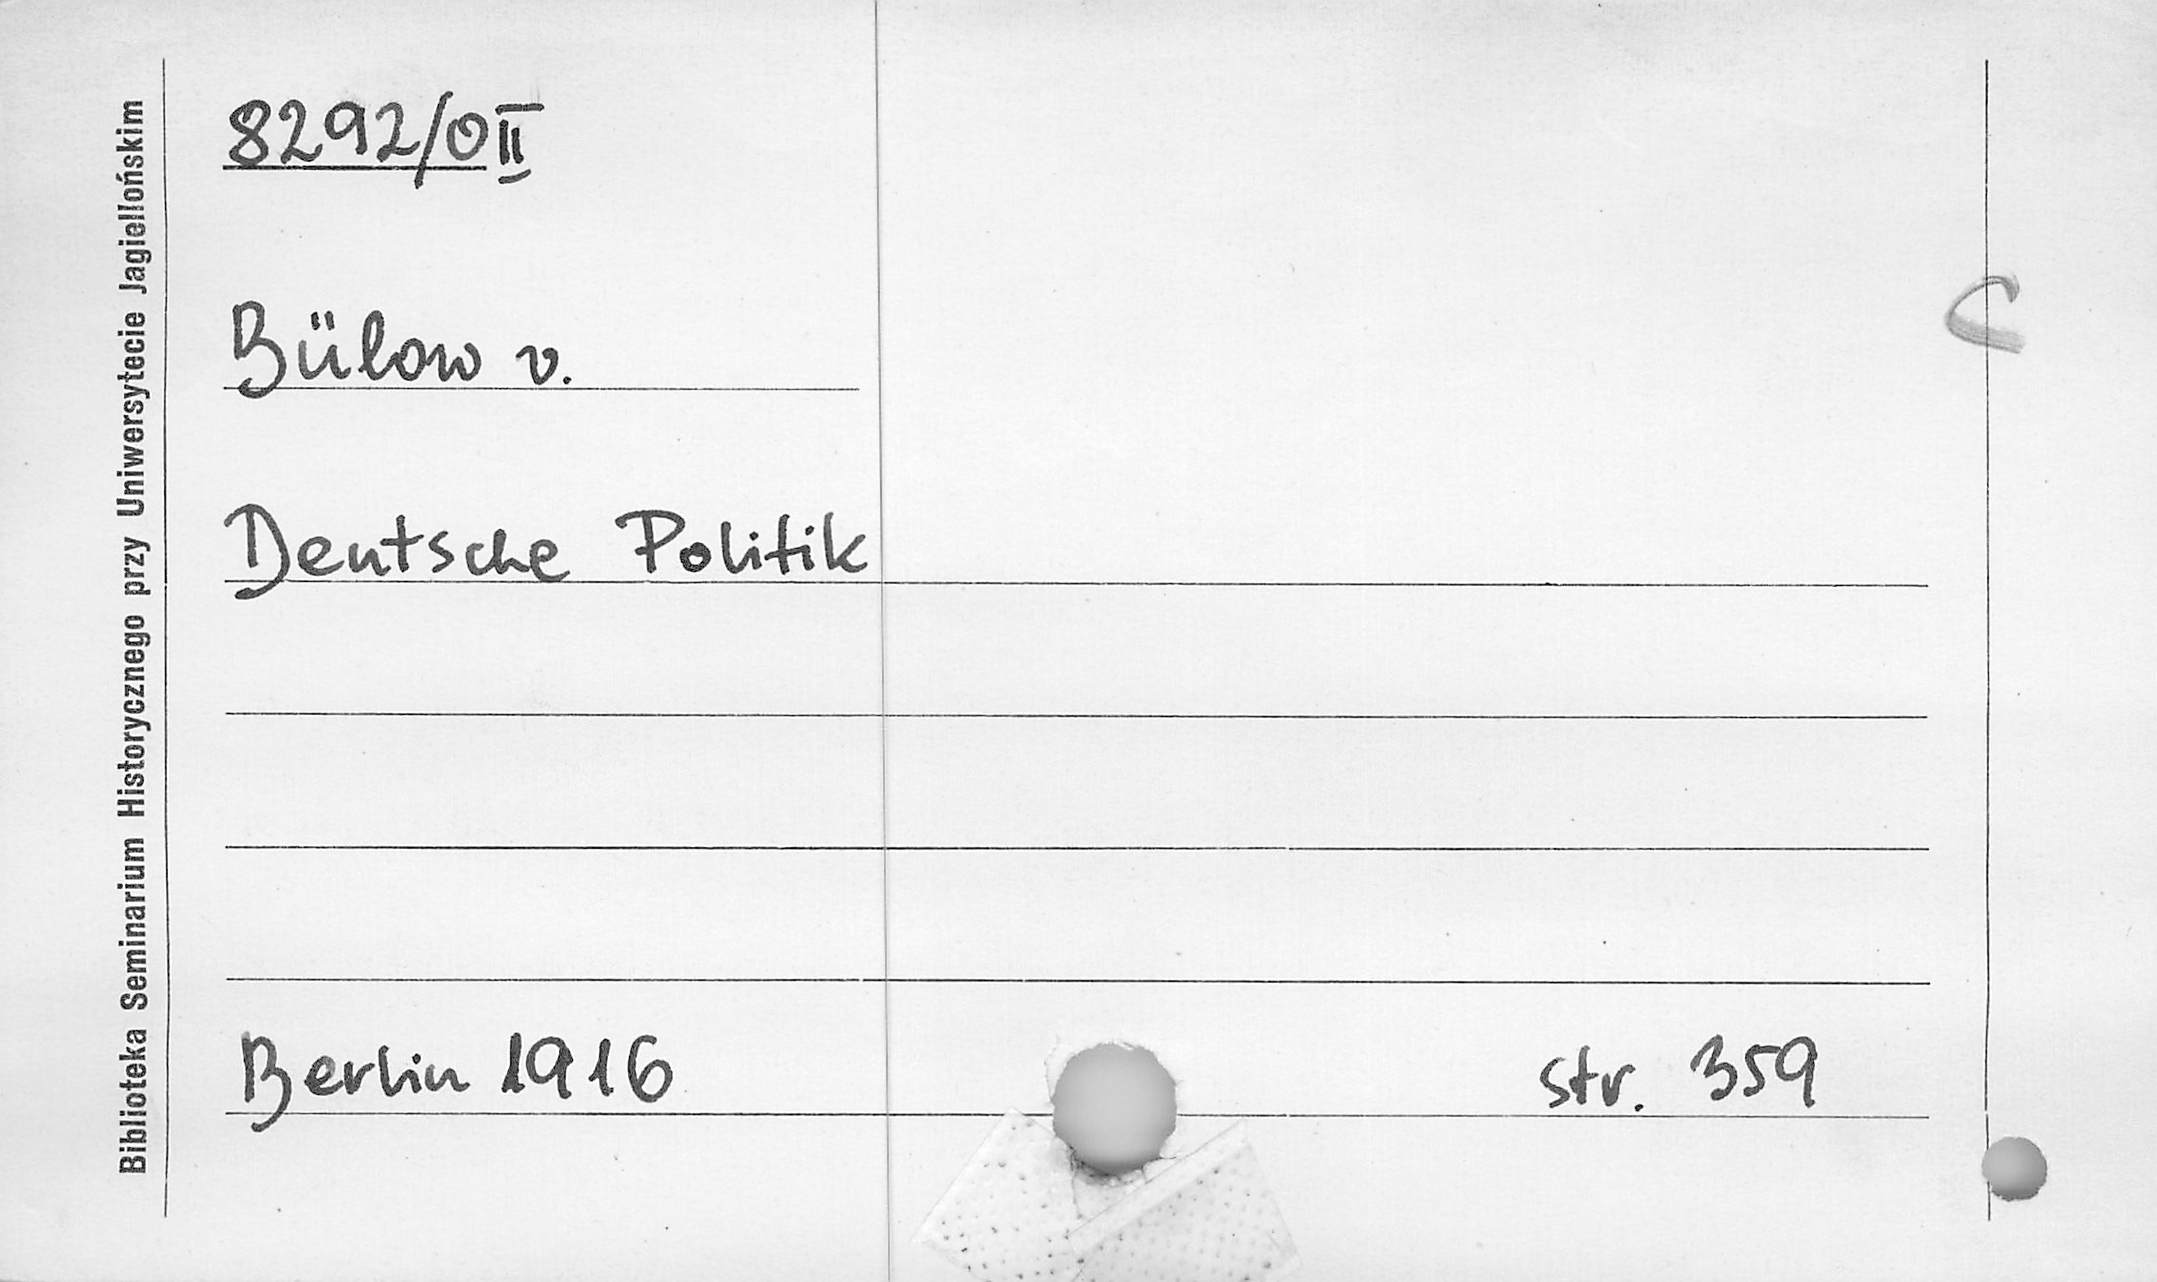 8292/O II
Bülow v.
Deutsche Politik
Berlin 1916 str. 359
Biblioteka Seminarium Historycznego przy Uniwersytecie Jagiellońskim